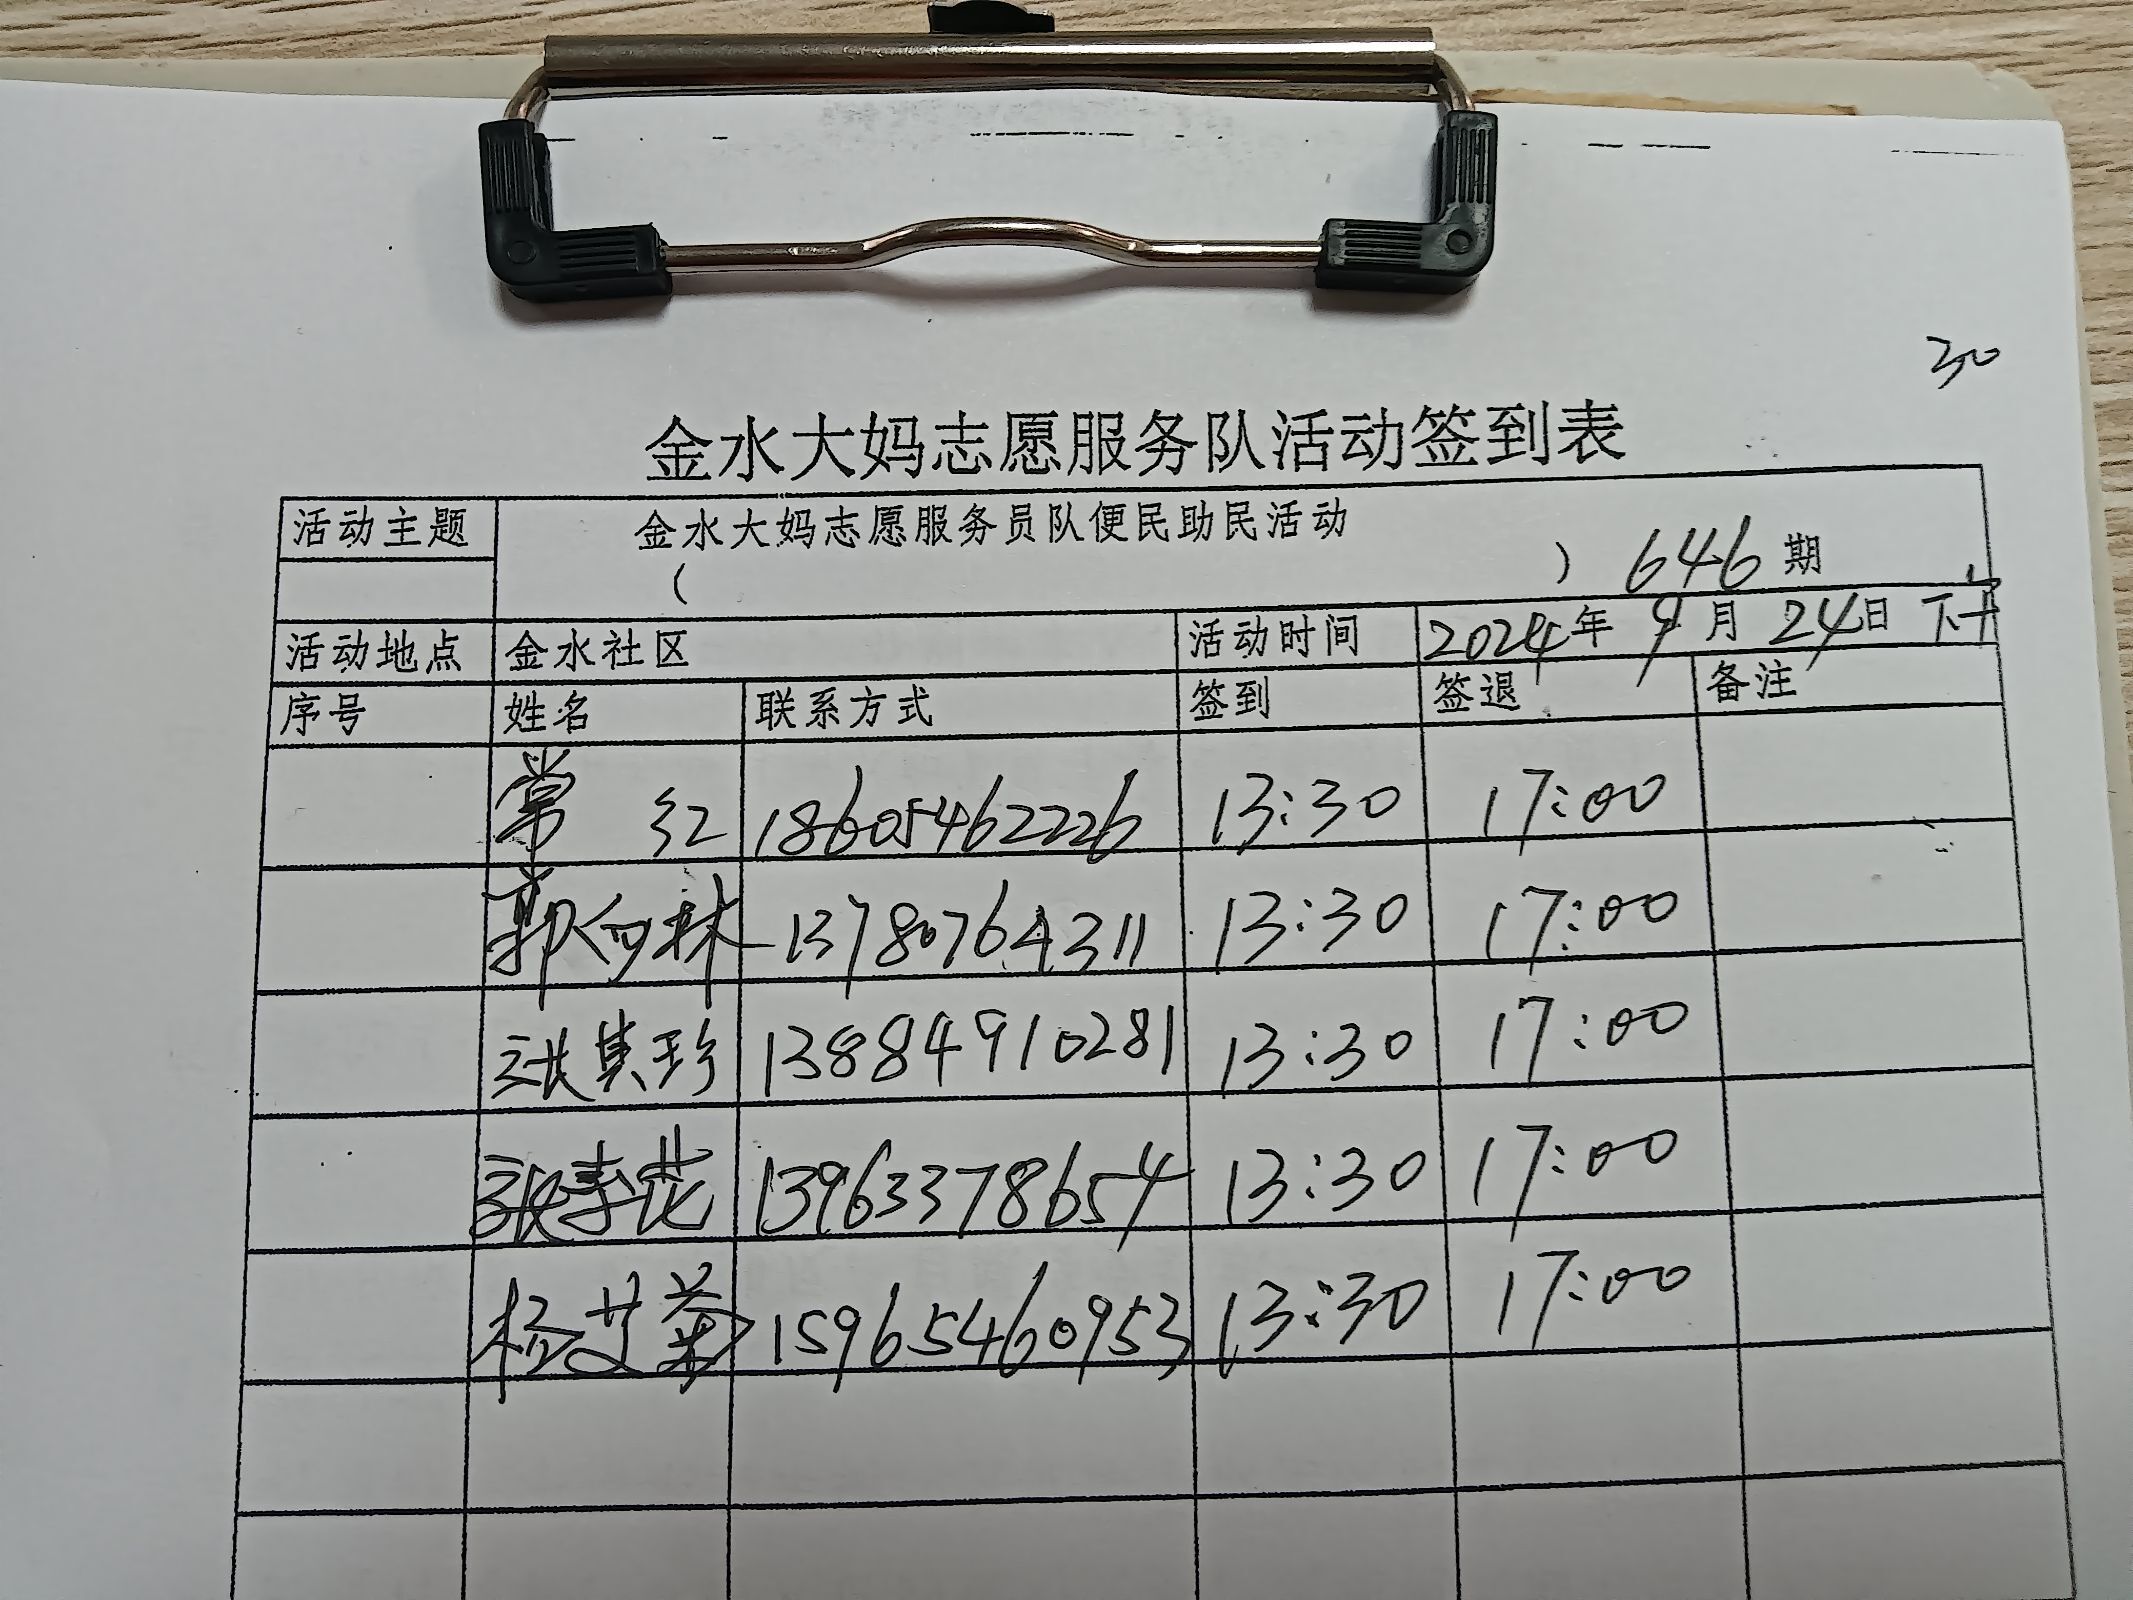 30
金水大妈志愿服务队活动签到表
活动主题 金水大妈志愿服务员队便民助民活动
( ) 646期
活动地点 金水社区 活动时间 2024年9月24日 下午
序号 姓名 联系方式 签到 签退 备注
常红 18605462226 13:30 17:00
郭向林 13780764311 13:30 17:00
张其珍 13884910281 13:30 17:00
张春花 13963378654 13:30 17:00
杨艾菊 15965460953 13:30 17:00